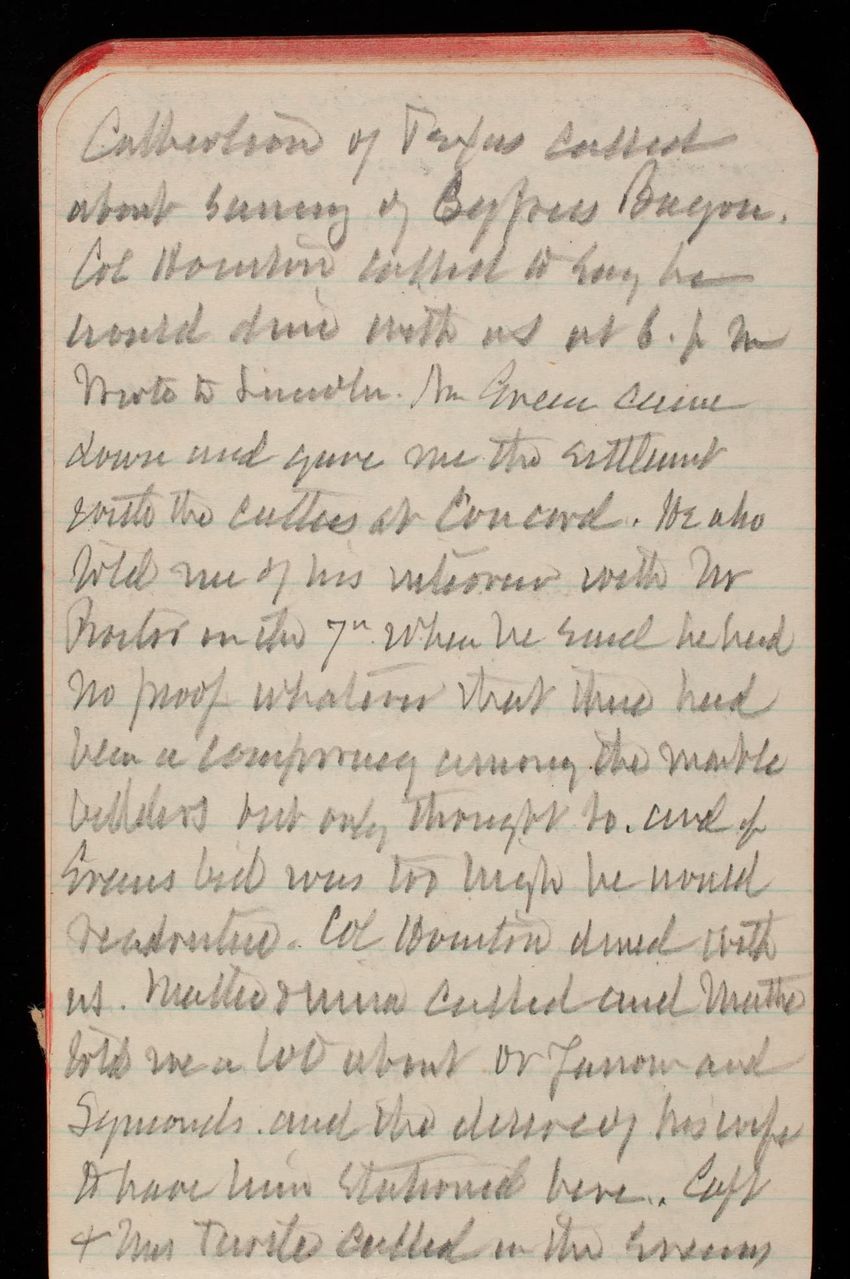 Culberson of Texas called
about survey of Cypress Bayou.
Col Houston called to say he
would dine with us at 6. p m
Wrote to Lincoln. Mr Green came
down and gave me the settlemt
with the cutters at Concord. He also
told me of his interview with Mr
Proctor on the 7th when he said he had
no proof whatever that there had
been a conspiracy among the marble
bidders but only thought so. and if
Greens bid was too high he would
readvertise. Col Houston dined with
us. Mattie & called and Mattie
told me a lot about Dr and
Symonds. and the desire of his wife
to have him stationed here. Capt
& Mrs called in the